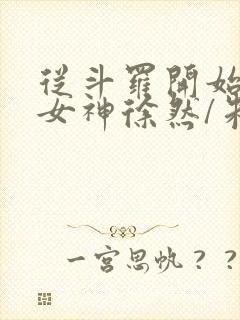 從斗羅開始
女神徐然/朱
一宮思帆??